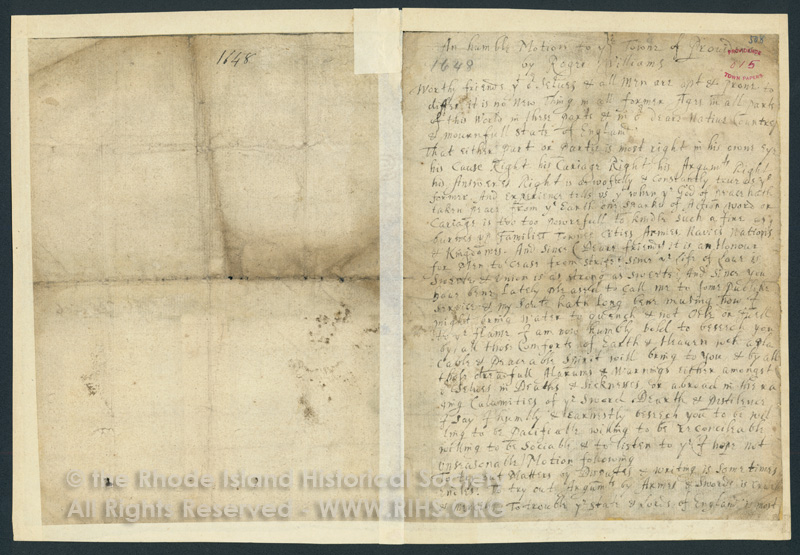 1648
An humble Motion to yᵉ Towne of Provid
1648 by Roger Williams
PROVIDENCE
015
TOWN PAPERS
Worthy friends yᵗ or selves & all Men are apt & prone to
differ it is no New Thing in all former Ages in all parts
of this World in these parts & in oʳ deare Native Countrey
& mournfull state of England
That either part or partie is most right in his owne eye
his Cause Right his Cariage Right his Argumᵗˢ Right
his Answeres Right is as woofully & constantly true as yᵉ
former. And experience tells us yᵗ when yᵉ God of peace hath
taken peace from yᵉ Earth one sparke of Action word or
Cariage is too too powerfull to kindle such a fire as
burnes up Families Townes Cities Armies Navies Nations
& Kingdomes. And since (Deare friends) it is an Honour
for Men to cease from strife: since yᵉ life of Love is
sweete & Union is as strong as sweete: And since you
have bene lately pleased to call me to some Publike
service & my soule hath long bene musing how I
might bring water to quench & not Oyle or fuell
to yᵉ flame I am now humbly bold to beseech you
by all those Comforts of Earth & Heaven wch a pla
cable & peaceable spirit will bring to you & by all
those dreadfull Alarums & Warnings either amongst
oʳ selves in Deaths & Sicknesses or abroad in the ra
ging Calamities of yᵉ Sword Dearth & Pestilence
I say I humbly & earnestly beseech you to be wil
ling to be Pacifiable willing to be Reconcileable
willing to be Sociable & to listen to yᵉ (I hope not
unreasonable) Motion following
To try out Matters by Disputes & writing is sometimes
Endles: To try out Argumᵗˢ by Armes & Swords is
& To trouble yᵉ state & Lords of England
© the Rhode Island Historical Society
All Rights Reserved - WWW.RIHS.ORG